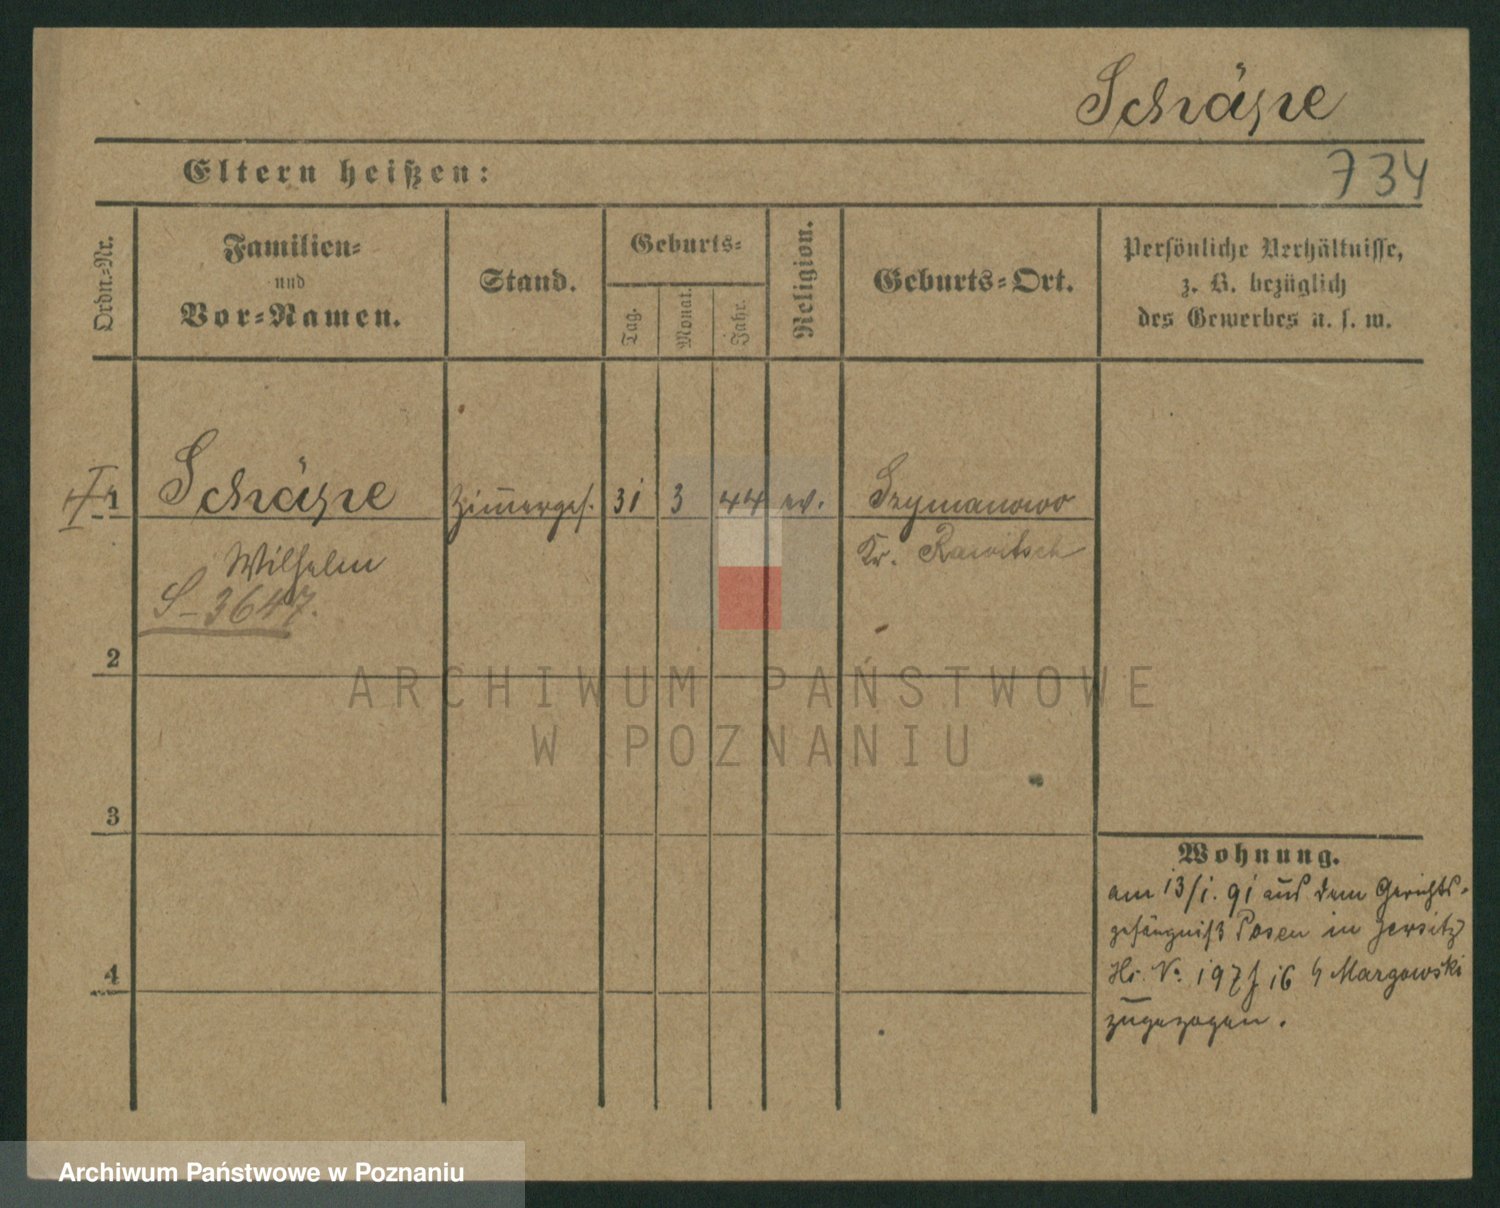 Schäpe
734
Eltern heißen:
Ordn.-Nr.
Familien-
und
Vor-Namen.
Stand.
Geburts-
Tag.
Monat.
Jahr.
Religion.
Geburts-Ort.
Persönliche Verhältnisse,
z. B. bezüglich
des Gewerbes u. s. w.
1 Schäpe Zimergef. 31 3 44 ev. Szymanowo
Wilhelm Kr. Rawitsch
S-3647.
2
3
4
Wohnung.
am 13/1. 91 aus dem Gerichts-
gefängniß Posen in Jersitz
No. 197 16 Margowski
zugezogen.
ARCHIWUM PAŃSTWOWE
W POZNANIU
Archiwum Państwowe w Poznaniu